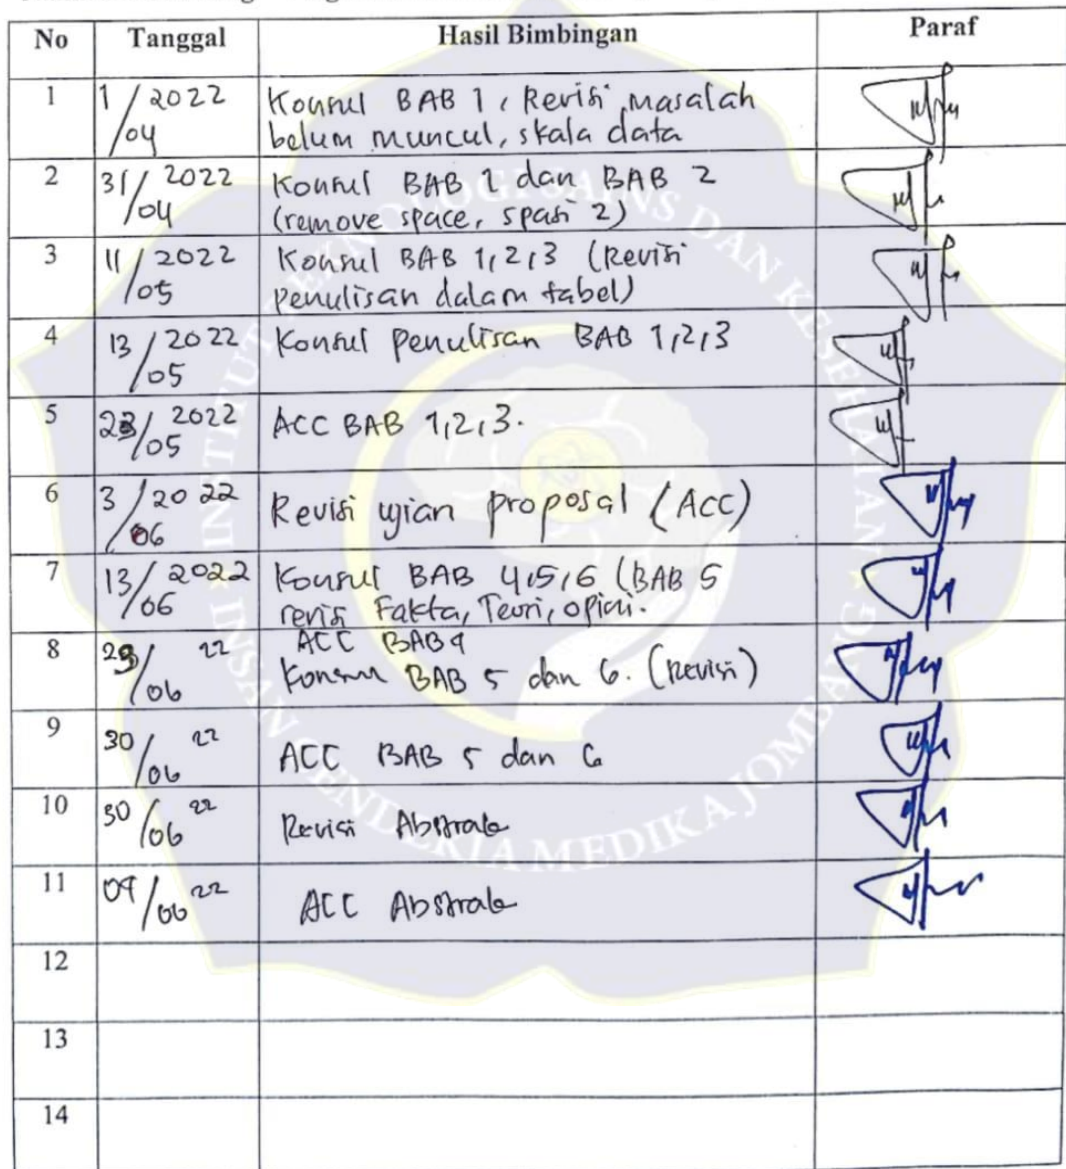 No Tanggal Hasil Bimbingan Paraf
1 1/04 2022 Konsul BAB 1, Revisi masalah
belum muncul, skala data
2 31/04 2022 Konsul BAB 1 dan BAB 2
(remove space, spasi 2)
3 11/05 2022 Konsul BAB 1,2,3 (Revisi
penulisan dalam tabel)
4 13/05 2022 Konsul penulisan BAB 1,2,3
5 23/05 2022 ACC BAB 1,2,3.
6 3/06 2022 Revisi ujian proposal (ACC)
7 13/06 2022 Konsul BAB 4,5,6 (BAB 5
revisi Fakta, Teori, opini.
8 29/06 22 ACC BAB 4
Konsul BAB 5 dan 6. (Revisi)
9 30/06 22 ACC BAB 5 dan 6
10 30/06 22 Revisi Abstrak
11 22 ACC Abstrak
12
13
14
INSTITUT TEKNOLOGI SAINS DAN KESEHATAN
INSAN CENDEKIA MEDIKA JOMBANG